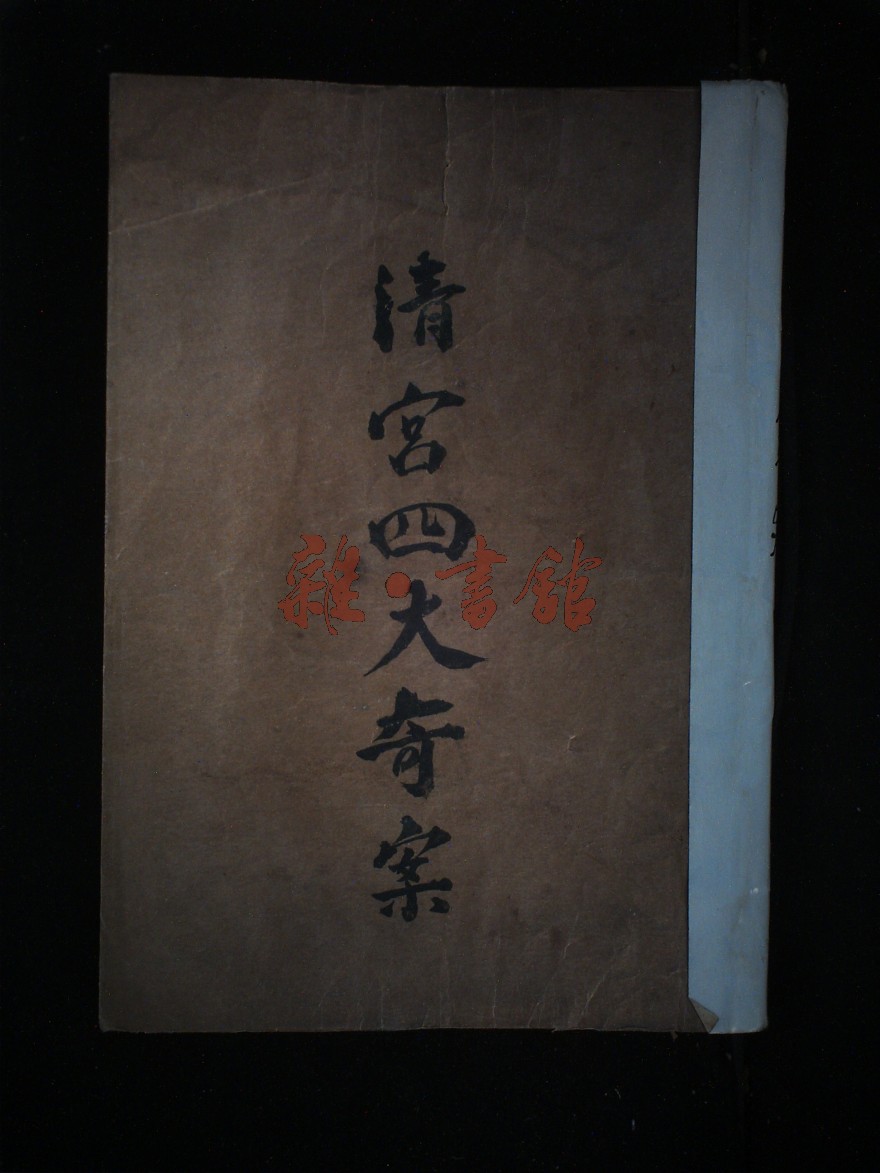 清宮四大奇案
雜·書館